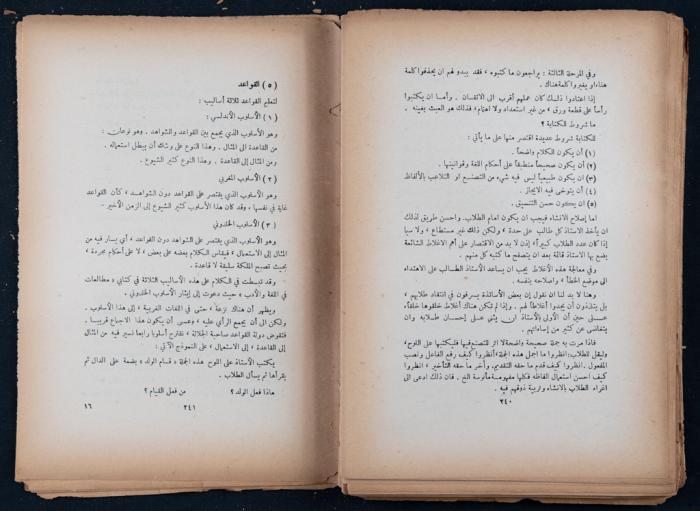 وفي المرحلة الثالثة : يراجعون ما كتبوه ، فقد يبدو لهم ان يحذفوا كلمة
هنا، او يغيروا كلمة هناك .
إذا اعتادوا ذلك كان عملهم أقرب الى الاتقان . وأما ان يكتبوا
رأساً على قطعة ورق ، من غير استعداد ولا اهتمام فذلك هو العبث بعينه .
ما شروط الكتابة ؟
للكتابة شروط عديدة اقتصر منها على ما يأتي :
(١) أن يكون الكلام واضحاً .
(٢) أن يكون صحيحاً منطبقاً على أحكام اللغة وقوانينها .
(٣) ان يكون طبيعياً ليس فيه شيء من التصنع او التلاعب بالألفاظ
(٤) أن يتوخى فيه الايجاز .
(٥) ان يكون حسن التنسيق .
اما إصلاح الانشاء فيجب ان يكون امام الطلاب . واحسن طريق لذلك
ان يأخذ الاستاذ كل طالب على حدة ، ولكن ذلك غير مستطاع ، ولا سيا
إذا كان عدد الطلاب كبيراً، إذن لا بد من الاقتصار على أهم الاغلاط الشائعة
يضع بها الاستاذ قائمة بعد ان يتصفح ما كتبه كل منهم .
وفي معالجة هذه الأغلاط يجب ان يساعد الأستاذ الطالب على الاهتداء
الى موضع الخطأ ، واصلاحه بنفسه .
وهنا لا بد لنا ان نقول إن بعض الأساتذة يسرفون في انتقاد طلابهم ،
بل يتلذذون أن يجدوا أغلاطاً لهم . وإذا لم تكن هناك أغلاط خلقوها خلقاً،
على حين أن الأولى بالأستاذ ان يثني على إحسان طلابه وان
يتغاضى عن كثير من إساءاتهم .
فاذا مرت به جملة صحيحة واضحة لا اثر للتصنع فيها فليكتبها على اللوح،
وليقل للطلاب: انظروا ما اجمل هذه الجملة ! أنظروا كيف رفع الفاعل ونصب
المفعول . انظروا كيف قدم ما حقه التقديم، وأخر ما حقه التأخير ، انظروا
كيف احسن استعمال الفاظه فكلها مفهومة مأنوسة الخ . فان ذلك ادعى الى
اغراء الطلاب بالانشاء وتربية ذوقهم فيه .
٢٤٠
(٥) القواعد
لتعليم القواعد ثلاثة أساليب :
(١) الأسلوب الأندلسي :
وهو الأسلوب الذي يجمع بين القواعد والشواهد . وهو نوعان .
من القاعدة الى المثال . وهذا النوع على وشك أن يبطل استعماله .
ومن المثال إلى القاعدة . وهذا النوع كثير الشيوع .
(٢) الأسلوب المغربي
وهو الأسلوب الذي يقتصر على القواعد دون الشواهد ، كأن القواعد
غاية في نفسها ، وقد كان هذا الأسلوب كثير الشيوع إلى الزمن الأخير .
(٣) الأسلوب الخلدوني
وهو الأسلوب الذي يقتصر على الشواهد دون القواعد ، أي يسار فيه من
المثال إلى الاستعمال ، فيقاس الكلام بعضه على بعض ، لا على أحكام مجردة ،
بحيث تصبح الملكة سليقة لا قاعدة .
وقد تبسطت في الكلام على هذه الأساليب الثلاثة في كتابي « مطالعات
في اللغة والأدب ، حيث دعوت إلى إيثار الأسلوب الخلدوني .
ويظهر أن هناك نزعة ، حتى في اللغات الغربية ، إلى هذا الأسلوب .
ولكن الى أن يجمع الرأي عليه ، وعسى أن يكون هذا الاجماع قريبا ،
فتقوض دولة القواعد صاحبة الجلالة ، نقترح أسلوبا رابعا نسير فيه من المثال
إلى القاعدة ، إلى الاستعمال ، على النموذج الآتي :
يكتب الأستاذ على اللوح هذه الجملة « قام الولد » بضمة على الدال ثم
يقرأها ثم يسأل الطلاب .
ماذا فعل الولد ؟ من فعل القيام ؟
٢٤١ ١٦